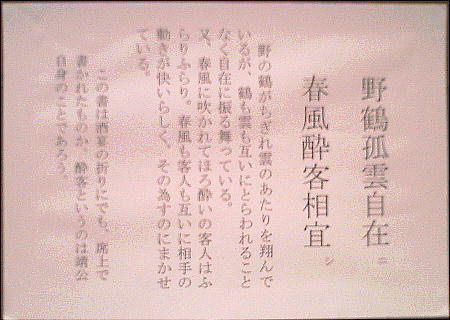 野鶴孤雲自在ニ
春風酔客相宜シ
野の鶴がちぎれ雲のあたりを翔んで
いるが、鶴も雲も互いにとらわれること
なく自在に振る舞っている。
又、春風に吹かれてほろ酔いの客人はふ
らりふらり。春風も客人も互いに相手の
動きが快いらしく、その為すのにまかせ
ている。
この書は酒宴の折りにでも、席上で
書かれたものか。酔客というのは靖公
自身のことであろう。